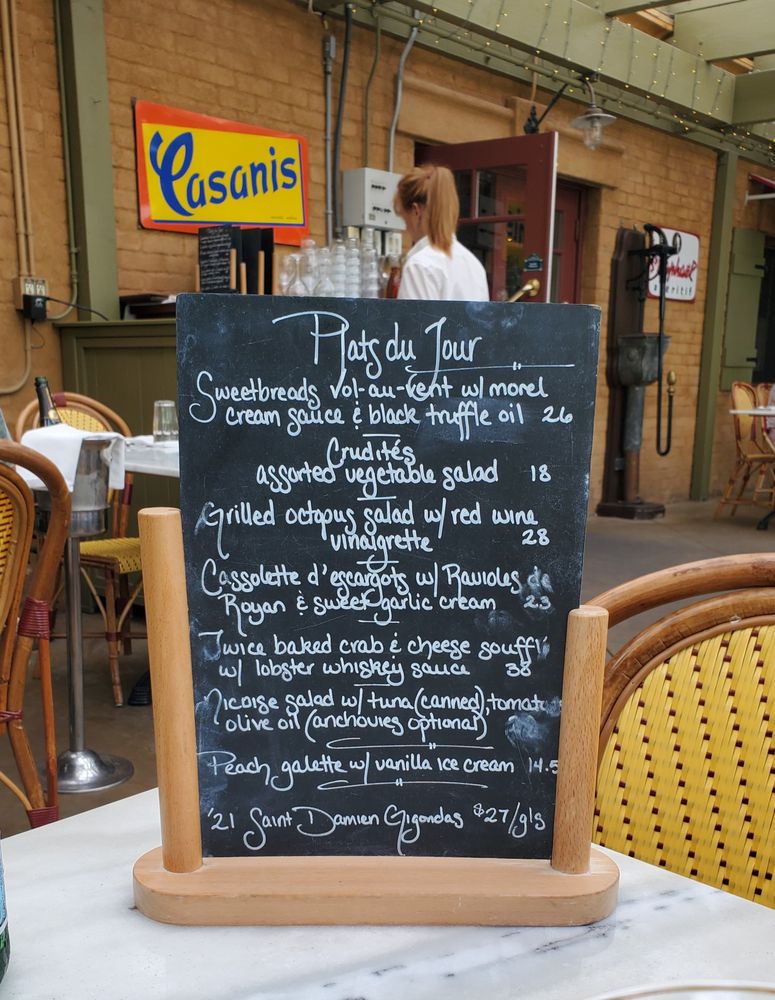 Casanis
Plats du Jour
Sweetbreads vol-au-vent w/ morel
cream sauce & black truffle oil 26
Crudités
assorted vegetable salad 18
Grilled octopus salad w/ red wine
vinaigrette 28
Cassolette d'escargots w/ Ravioles de
Royan & sweet garlic cream 23
Twice baked crab & cheese soufflé
w/ lobster whiskey sauce 38
Nicoise salad w/ tuna (canned), tomato
olive oil (anchovies optional)
Peach galette w/ vanilla ice cream 14.5
'21 Saint Damien Gigondas $27/gls